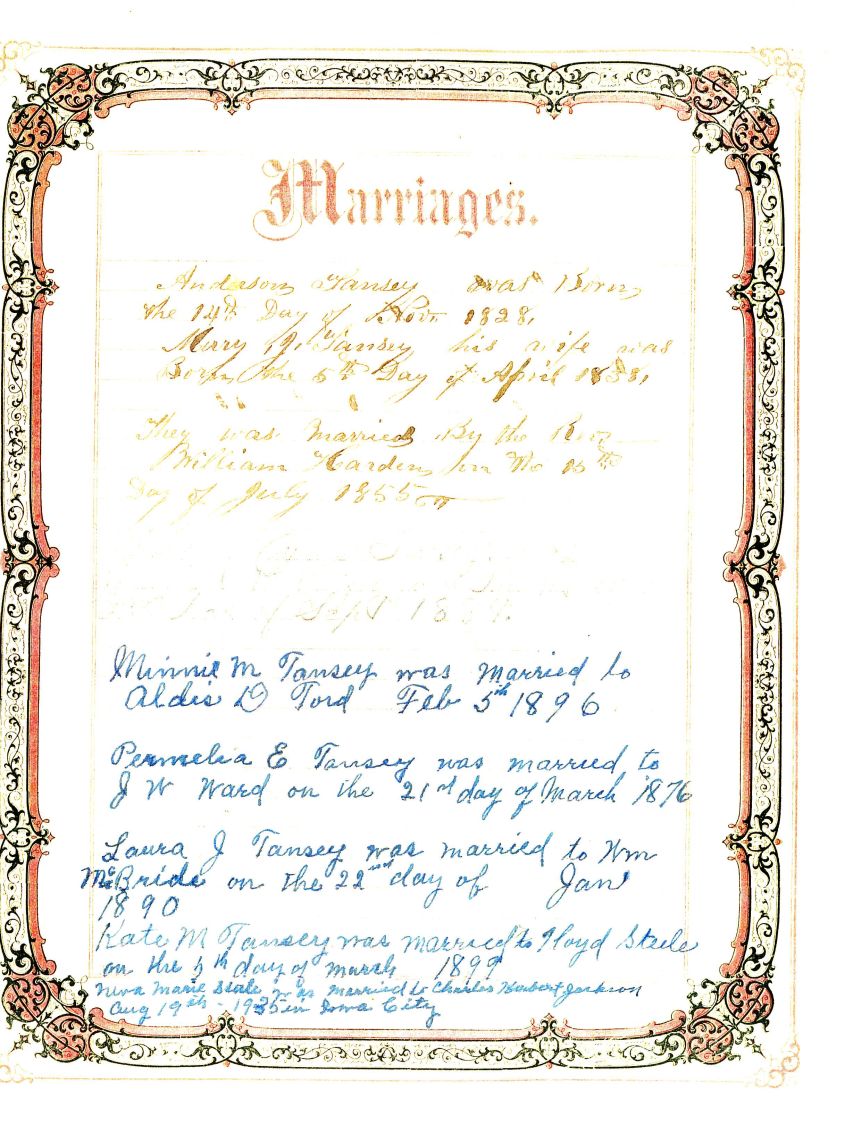 Marriages.
Anderson Tansey was Born
the 14th Day of Novr 1828,
Mary J. Tansey his wife was
Born the 5th Day of April 1838,
They was Married By the Rev
William Harden on the 15th
Day of July 1855
Day of Sept 18
Minnie M Tansey was married to
Aldis D Ford Feb 5th 1896
Permelia E Tansey was married to
J W Ward on the 21st day of March 1876
Laura J Tansey was married to Wm
McBride on the 22nd day of Jan
1890
Kate M Tansey was married to Floyd Steele
on the day of march 1899
Neva Marie Steele was married to Charles Herbert Jackson
Aug 19th - 1935 in Iowa City